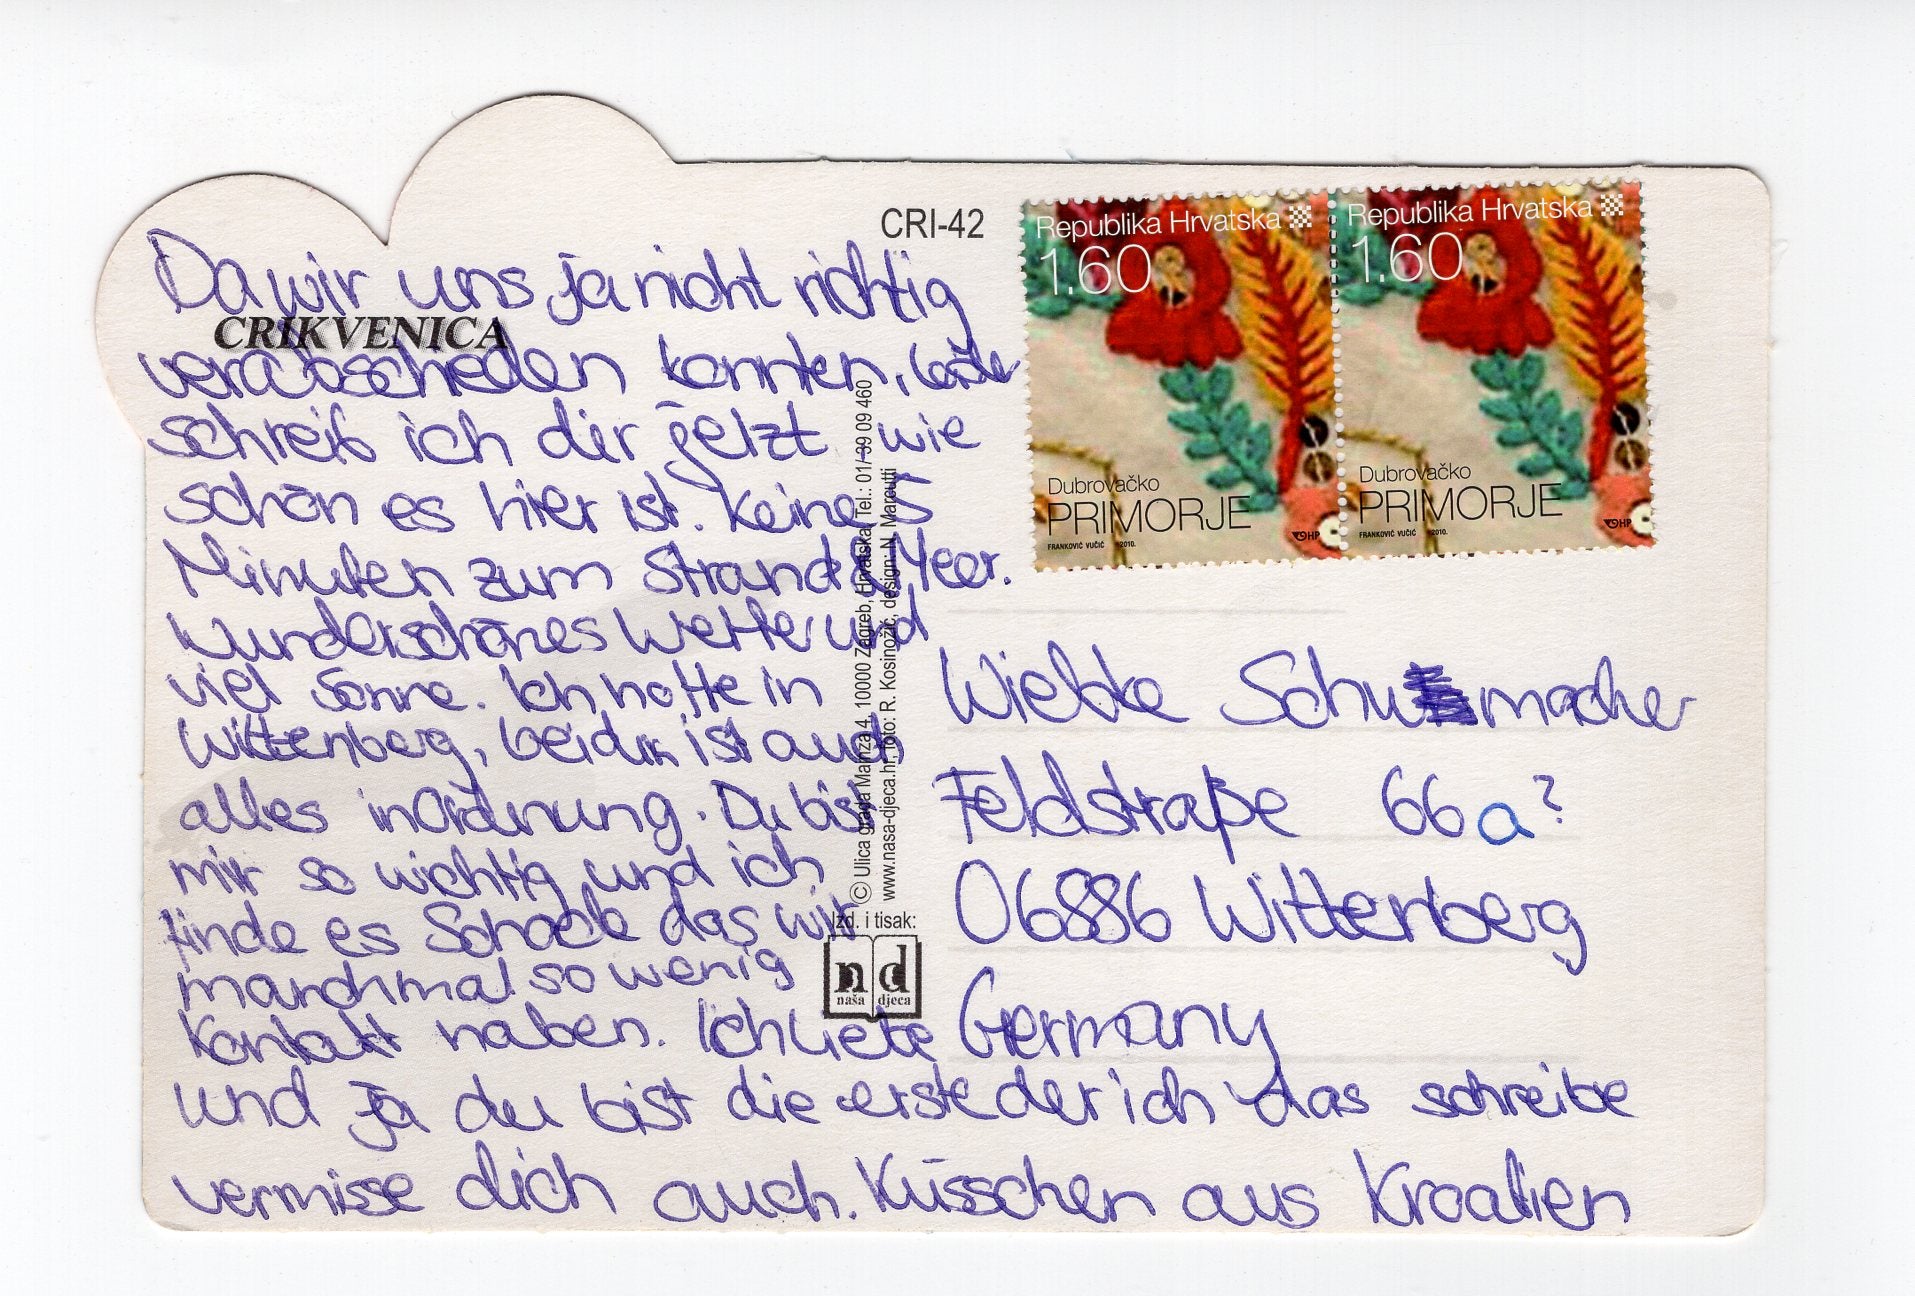 CRI-42
Republika Hrvatska
1.60
Dubrovačko
PRIMORJE
FRANKOVIĆ VUČIĆ ©2010.
HP
Republika Hrvatska
1.60
Dubrovačko
PRIMORJE
FRANKOVIĆ VUČIĆ ©2010.
HP
CRIKVENICA
Da wir uns ja nicht richtig
verabschieden konnten,
schreib ich dir jetzt wie
schön es hier ist. Keine 5
Minuten zum Strand & Meer.
Wunderschönes Wetter und
viel Sonne. Ich hoffe in
Wittenberg, bei dir ist auch
alles in Ordnung. Du bist
mir so wichtig und ich
finde es Schade das wir
manchmal so wenig
Kontakt haben. Ich liebe
und ja du bist die erste der ich das schreibe
vermisse dich auch. Küsschen aus Kroatien
© Ulica grada Mainza 14, 10000 Zagreb, Hrvatska, Tel.: 01/ 39 09 460
www.nasa-djeca.hr, foto: R. Kosinožić, design: N. Marcutti
Izd. i tisak:
nd
naša djeca
Wiebke Schumacher
Feldstraße 66 a?
06886 Wittenberg
Germany